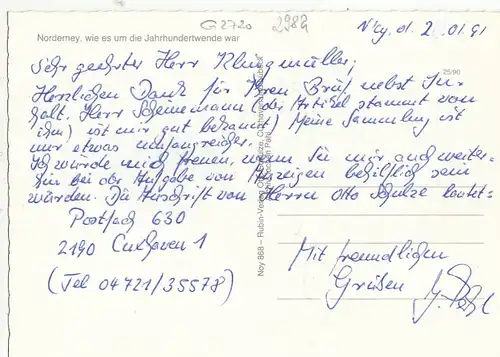 G 2720 2982
Norderney, wie es um die Jahrhundertwende war
Ney, d. 2.01.91
Sehr geehrter Herr Klingmüller,
25/90
Herzlichen Dank für Ihren Brief nebst In-
halt. Herr Scheinemann (der Artikel stammt von
ihm) ist mir gut bekannt) Meine Sammlung ist
nur etwas umfangreicher.
Ich würde mich freuen, wenn Sie mir auch weiter-
hin bei der Aufgabe von Anzeigen behilflich sein
würden. Die Anschrift von Herrn Otto Schulze lautet:
Postfach 630
2190 Cuxhaven 1
(Tel 04721/35578)
Mit freundlichen
Grüßen
Ney 868 – Rubin-Verlag Otto Schulze, Cuxhaven